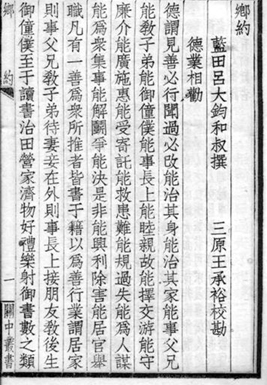 鄉約
藍田呂大鈞和叔撰　三原王承裕校勘
德業相勸
德謂見善必行聞過必改能治其身能治其家能事父兄
能教子弟能御僮僕能事長上能睦親故能擇交游能守
廉介能廣施惠能受寄託能救患難能規過失能為人謀
能為衆集事能解鬭爭能決是非能興利除害能居官舉
職凡有一善為衆所推者皆書于籍以為善行業謂居家
則事父兄教子弟待妻妾在外則事長上接朋友教後生
御僮僕至于讀書治田營家濟物好禮樂射御書數之類
鄉約
一
關中叢書